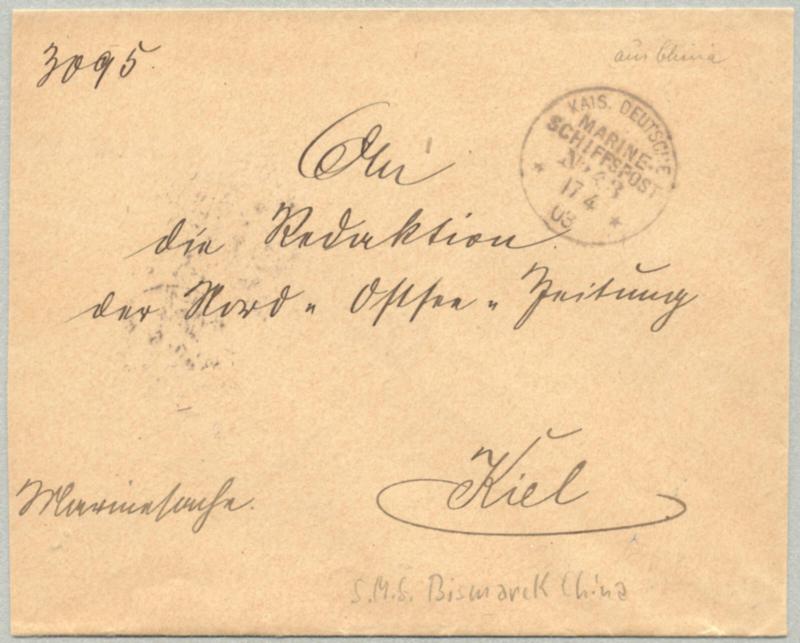 3095.
aus China
KAIS. DEUTSCHE
MARINE-
SCHIFFSPOST
No 43
17 4
03
An
die Redaktion
der Nord- Ostsee- Zeitung
Kiel
Marinesache.
S.M.S. Bismarck China